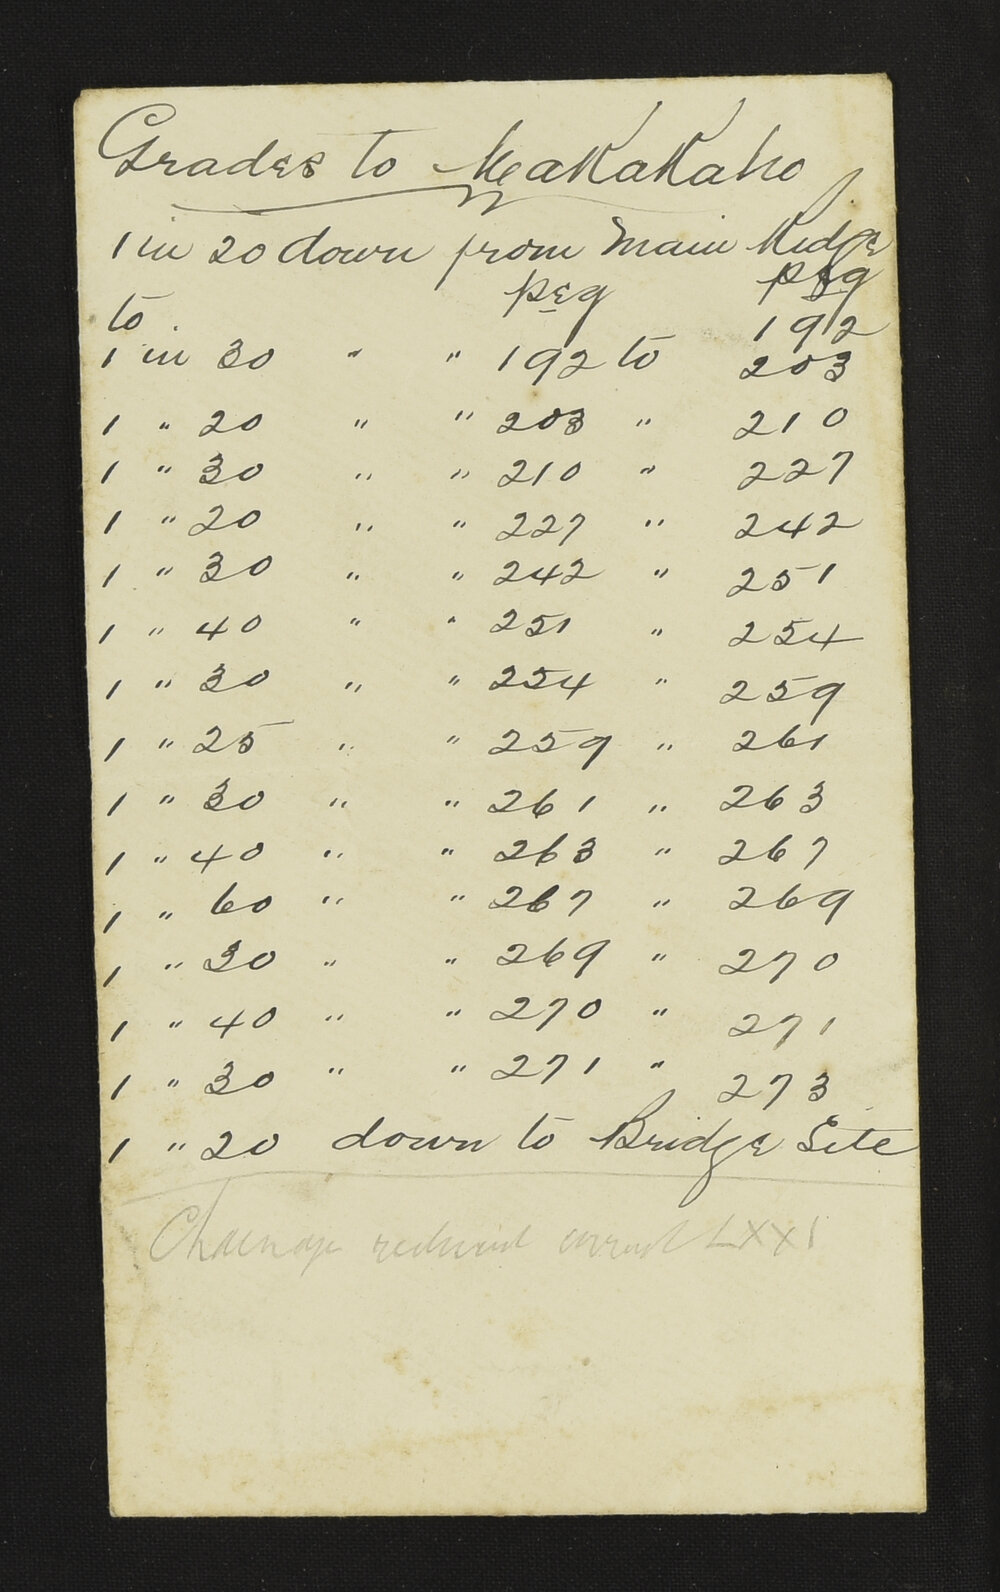 Grades to Makakaho
1 in 20 down from Main Ridge
peg peg
to 192
1 in 30 " " 192 to 203
1 " 20 " " 203 " 210
1 " 30 " " 210 " 227
1 " 20 " " 227 " 242
1 " 30 " " 242 " 251
1 " 40 " " 251 " 254
1 " 30 " " 254 " 259
1 " 25 " " 259 " 261
1 " 30 " " 261 " 263
1 " 40 " " 263 " 267
1 " 60 " " 267 " 269
1 " 30 " " 269 " 270
1 " 40 " " 270 " 271
1 " 30 " " 271 " 273
1 " 20 down to Bridge Site
Chainage reduced correct LXXI